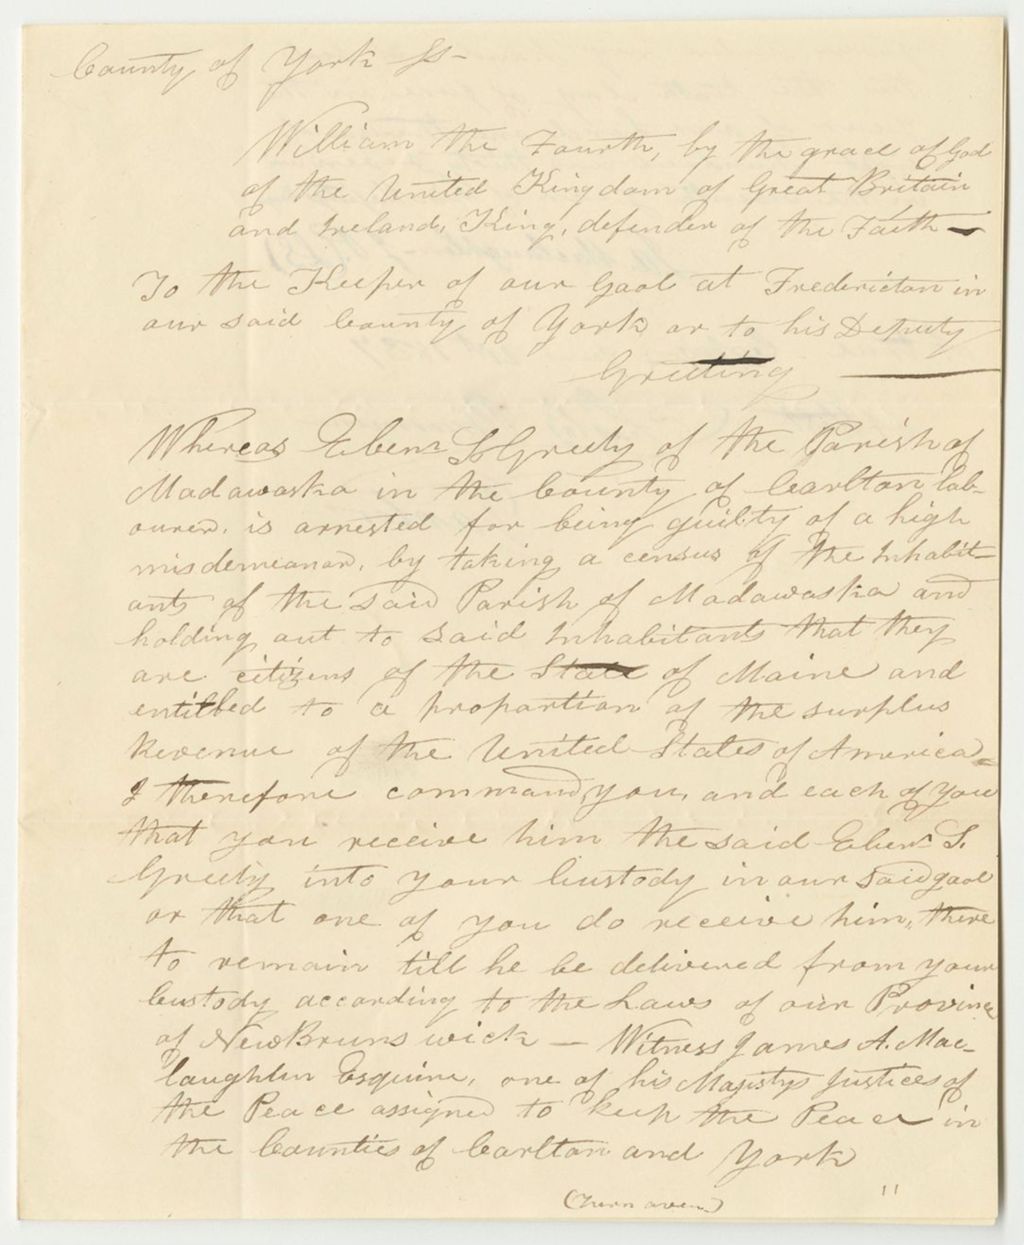 County of York Ss-
William the Fourth, by the grace of God
of the United Kingdom of Great Britain
and Ireland, King, defender of the Faith —
To the Keeper of our Gaol at Fredericton in
our said County of York or to his Deputy
Greeting
Whereas Ebenr S Greely of the Parish of
Madawaska in the County of Carlton lab-
ourer, is arrested for being guilty of a high
misdemeanor, by taking a census of the Inhabit-
ants of the said Parish of Madawaska and
holding out to said Inhabitants that they
are citizens of the State of Maine and
entitled to a proportion of the surplus
Revenue of the United States of America
I therefore command, you, and each of you
that you receive him the said Ebenr S.
Greely into your Custody in our said gaol
or that one of you do receive him, there
to remain till he be delivered from your
Custody according to the Laws of our Province
of New Brunswick — Witness James A. Mac-
laughlin Esquire, one of his Majestys Justices of
the Peace assigned to keep the Peace in
the Counties of Carlton and York
(Turn over)
"